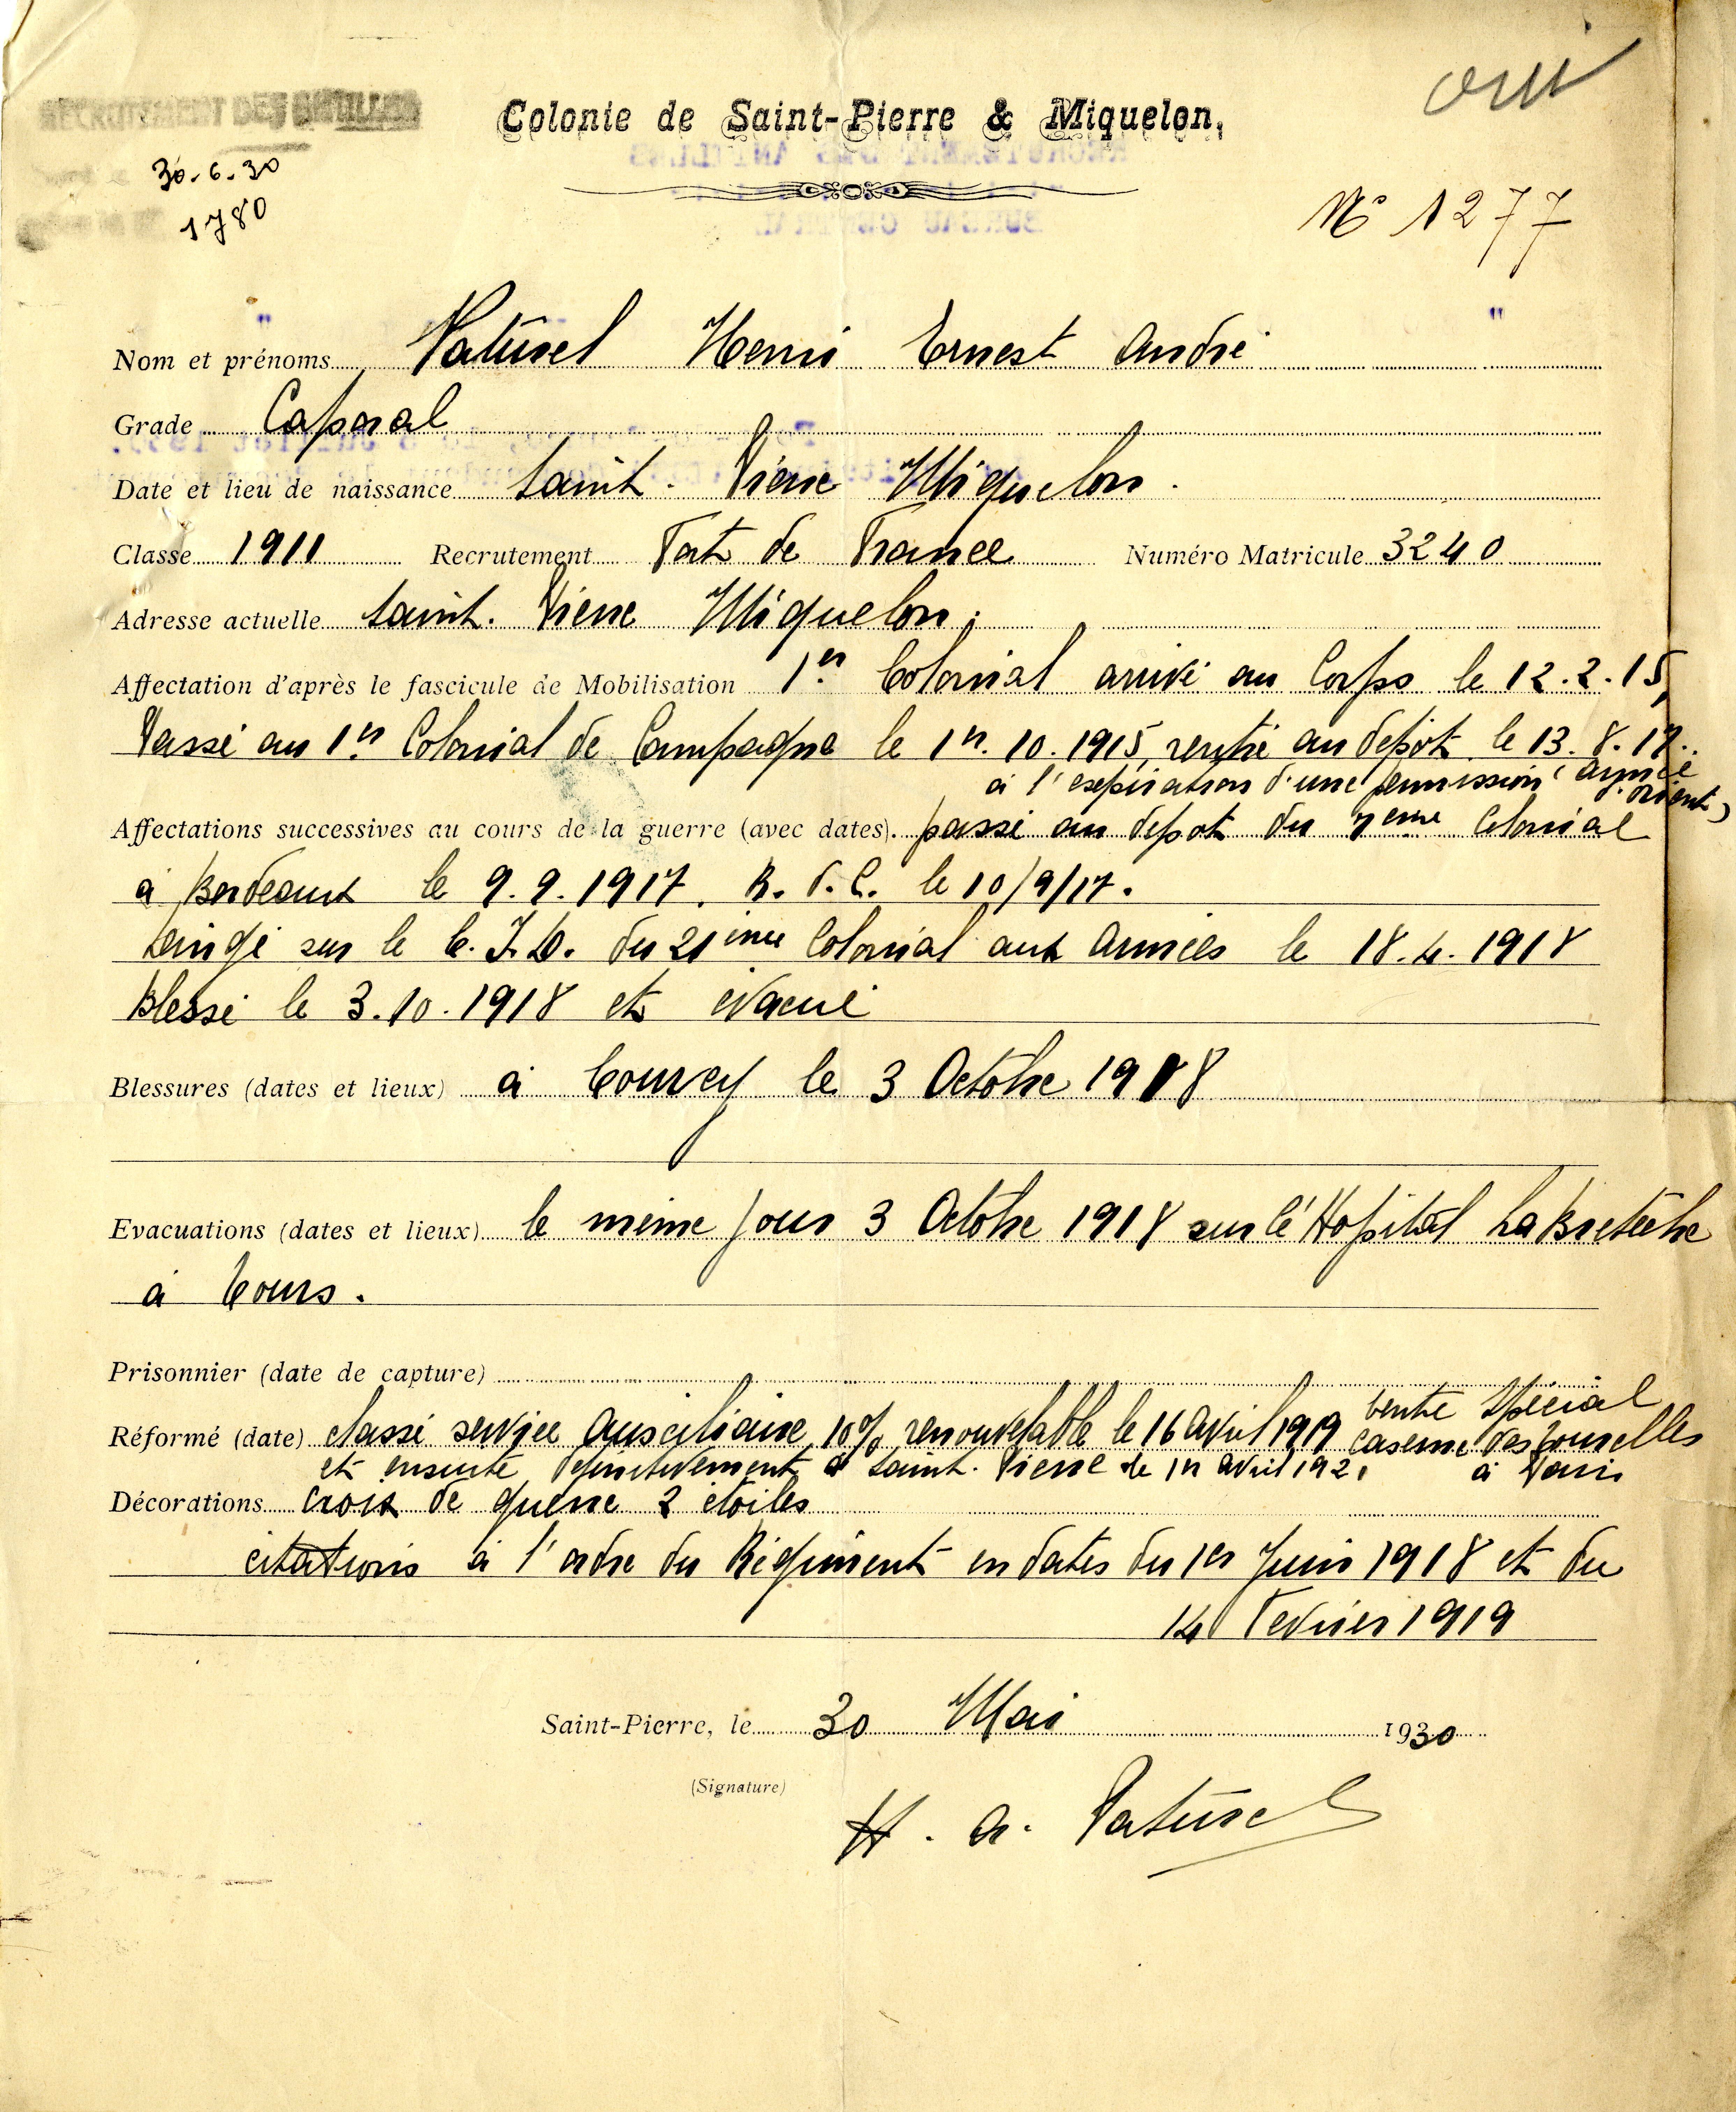 oui
RECRUTEMENT DES ANTILLES
Colonie de Saint-Pierre & Miquelon.
30.6.30
1780
N° 1277
Nom et prénoms Patürel Henri Ernest André
Grade Caporal
Date et lieu de naissance Saint. Pierre Miquelon.
Classe 1911 Recrutement Fort de France Numéro Matricule 3240
Adresse actuelle Saint. Pierre Miquelon.
Affectation d'après le fascicule de Mobilisation 1er Colonial arrivé au Corps le 12.2.15,
Passé au 1er Colonial de Campagne le 1er.10.1915, rentré au dépôt le 13.8.17..
à l'expiration d'une permission (armée d'orient)
Affectations successives au cours de la guerre (avec dates). passé au dépot du 7eme Colonial
à Bordeaux le 9.9.1917. R.d.C. le 10/9/17.
Dirigé sur le C.I.D. du 21ième Colonial aux Armées le 18.4.1918
Blessé le 3.10.1918 et évacué
Blessures (dates et lieux) à Courcy le 3 Octobre 1918
Evacuations (dates et lieux) le même jour 3 Octobre 1918 sur l'Hopital La Bretèche
à Tours.
Prisonnier (date de capture)
Réformé (date) classé service Auxciliaire 10% renouvelable le 16 Avril 1919 Centre Spécial
caserne des Tourelles
et ensuite définitivement à Saint. Pierre le 1er avril 1921 à Paris
Décorations Croix de guerre 2 étoiles
citations à l'ordre du Régiment en dates du 1er Juin 1918 et du
14 Fevrier 1919
Saint-Pierre, le 30 Mai 1930
(Signature)
H. A. Patürel